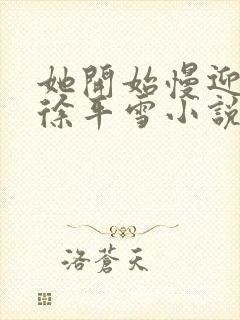 她開始慢迎
徐平雪小說
洛蒼天